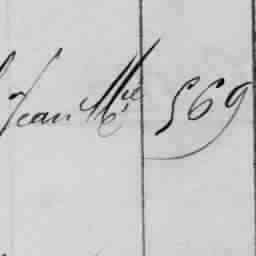 Jean Mie 569